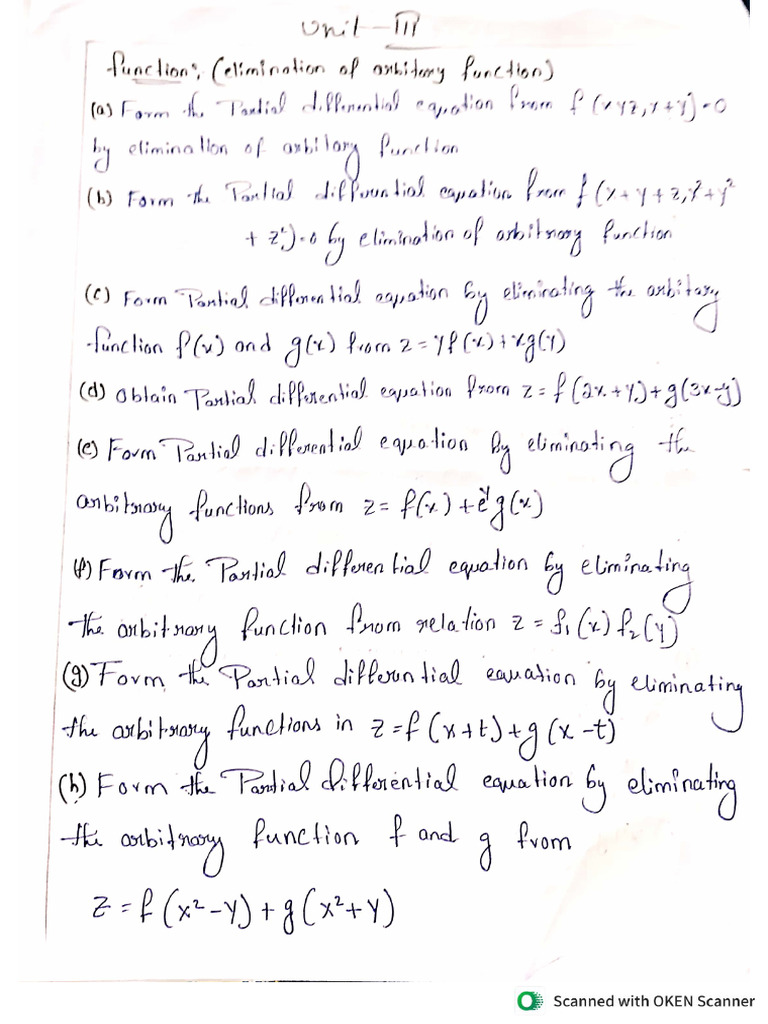 Unit-III
function: (elimination of arbitary function)
(a) Form the Partial differential equation from f(xyz, x+y)=0
by elimination of arbitary function
(b) Form the Partial differential equation from f(x+y+z, x²+y²
+ z²)=0 by elimination of arbitrary function
(c) Form Partial differential equation by eliminating the arbitary
function f(x) and g(x) from z = yf(x)+xg(y)
(d) Obtain Partial differential equation from z=f(2x+y)+g(3x-y)
(e) Form Partial differential equation by eliminating the
arbitrary functions from z= f(x)+eʸg(x)
(f) Form the Partial differential equation by eliminating
the arbitrary function from relation z = f₁(x) f₂(y)
(g) Form the Partial differential equation by eliminating
the arbitrary functions in z=f(x+t)+g(x-t)
(h) Form the Partial differential equation by eliminating
the arbitrary function f and g from
z=f(x²-y)+g(x²+y)
Scanned with OKEN Scanner